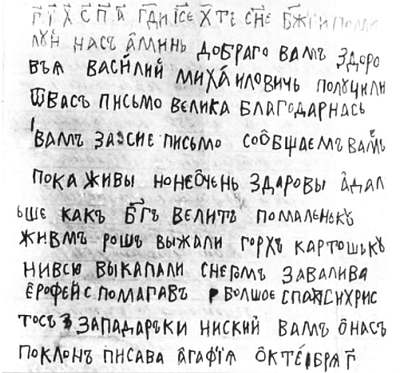 Г҃Г҃Х҃ С҃ П҃ Н҃ Г҃ДИ І҃СЕ Х҃ТЕ С҃НЕ Б҃ЖІИ ПОМИ
ЛУН НАСЪ АМИНЬ ДОБРАГО ВАМЪ ЗДОРО
ВЪЯ ВАСИЛИЙ МИХАИЛОВИЧЬ ПОЛУЦИЛИ
ѾВАСЪ ПИСЬМО ВЕЛИКА БЛАГОДАРНАСЬ
ВАМЪ ЗАЭСИЕ ПИСЬМО СООБЩАЕМЪ ВАМЪ
ПОКА ЖИВЫ НОНЕОЧЕНЬ ЗДАРОВЫ АДАЛ
ЬШЕ КАКЪ Б҃ГЪ ВЕЛИТЬ ПОМАЛЕНЬКЪ
ЖИВМЪ РОШЪ ВЫЖАЛИ ГОРХЪ КАРТОШЬКЪ
НИВСЮ ВЫКАПАЛИ СНЕГОМЪ ЗАВАЛИВА
ЕРОФЕЙ СПОМАГАВЪ БОЛШОЕ СПАСИХРИС
ТОСЪ ЗАПАДАРЪКИ НИСКИЙ ВАМЪ ОНАСЪ
ПОКЛОНЪ ПИСАВА АГАФІЯ ОКТЕБРЯ Г҃